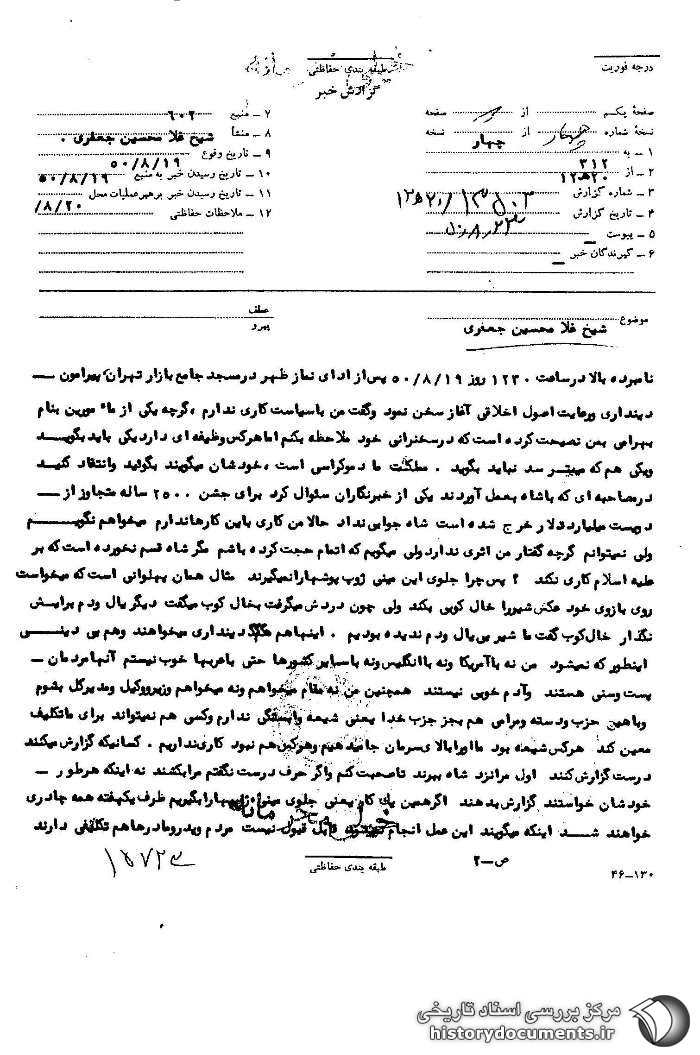 درجه فوریت
طبقه بندی حفاظتی
گزارش خبر
صفحهٔ یکم از صفحه
نسخهٔ شماره چهار از چهار نسخه
۱ – به ۳۱۲
۲ – از ۱۲ه۲۰
۳ – شماره گزارش ۱۲ه۲۰/۱۳۵۰۳
۴ – تاریخ گزارش ۵۰/۸/۲۳
۵ – پیوست –
۶ – گیرندگان خبر –
۷ – منبع ۶۰۲
۸ – منشأ شیخ غلامحسین جعفری .
۹ – تاریخ وقوع ۵۰/۸/۱۹
۱۰ – تاریخ رسیدن خبر به منبع ۵۰/۸/۱۹
۱۱ – تاریخ رسیدن خبر برهبر عملیات محل ۸/۲۰/
۱۲ – ملاحظات حفاظتی
موضوع شیخ غلامحسین جعفری
عطف
پیرو
نامبرده بالا در ساعت ۱۲۳۰ روز ۵۰/۸/۱۹ پس از ادای نماز ظهر در مسجد جامع بازار تهران پیرامون –
دینداری ورعایت اصول اخلاقی آغاز سخن نمود وگفت من باسیاست کاری ندارم ، گرچه یکی از مأمورین بنام
بهرامی بمن نصیحت کرده است که در سخنرانی خود ملاحظه بکنم اما هرکس وظیفه ای دارد یکی باید بگویسد
ویکی هم که میترسد نباید بگوید . مملکت ما دموکراسی است ، خودشان میگویند بگوئید وانتقاد کنید
در مصاحبه ای که باشاه بعمل آوردند یکی از خبرنگاران سئوال کرد برای جشن ۲۵۰۰ ساله متجاوز از –
دویست میلیارد دلار خرج شده است شاه جوابی نداد حالا من کاری باین کارها ندارم میخواهم نگویم
ولی نمیتوانم گرچه گفتار من اثری ندارد ولی میگویم که اتمام حجت کرده باشم مگر شاه قسم نخورده است که بر
علیه اسلام کاری نکند ؟ پس چرا جلوی این مینی ژوپ پوشها را نمیگیرند مثال همان پهلوانی است که میخواست
روی بازوی خود عکس شیر را خال کوبی بکند ولی چون دردش میگرفت بخال کوب میگفت دیگر یال ودم برایش
نگذار خال کوب گفت ما شیر بی یال ودم ندیده بودیم . اینها هم دینداری میخواهند وهم بی دینی
اینطور که نمیشود من نه باآمریکا ونه باانگلیس ونه باسایر کشورها حتی باعربها خوب نیستم آنها مردمان –
پست وسنی هستند وآدم خوبی نیستند همچنین من نه مقام میخواهم ونه میخواهم وزیر ووکیل ومدیرکل بشوم
وباهین حزب ودسته ومرامی هم بجز حزب خدا یعنی شیعه وابستگی ندارم وکس هم نمیتواند برای ماتکلیف
معین کند هرکس شیعه بود ما اورا بالای سرمان جا میدهیم وهرکس هم نبود کاری نداریم . کسانیکه گزارش میکنند
درست گزارش کنند اول مرا نزد شاه ببرند تاصحبت کنم واگر حرف درست نگفتم مرا بکشند نه اینکه هرطور –
خودشان خواستند گزارش بدهند اگر همین یک کار یعنی جلوی مینی ژوپها را بگیریم ظرف یکهفته همه چادری
خواهند شد اینکه میگویند این عمل انجام قابل قبول نیست مردم وپدر ومادرها هم تکلیفی دارند
ص–۲
طبقه بندی حفاظتی
۴۶–۱۳۰
مرکز بررسی اسناد تاریخی
historydocuments.ir